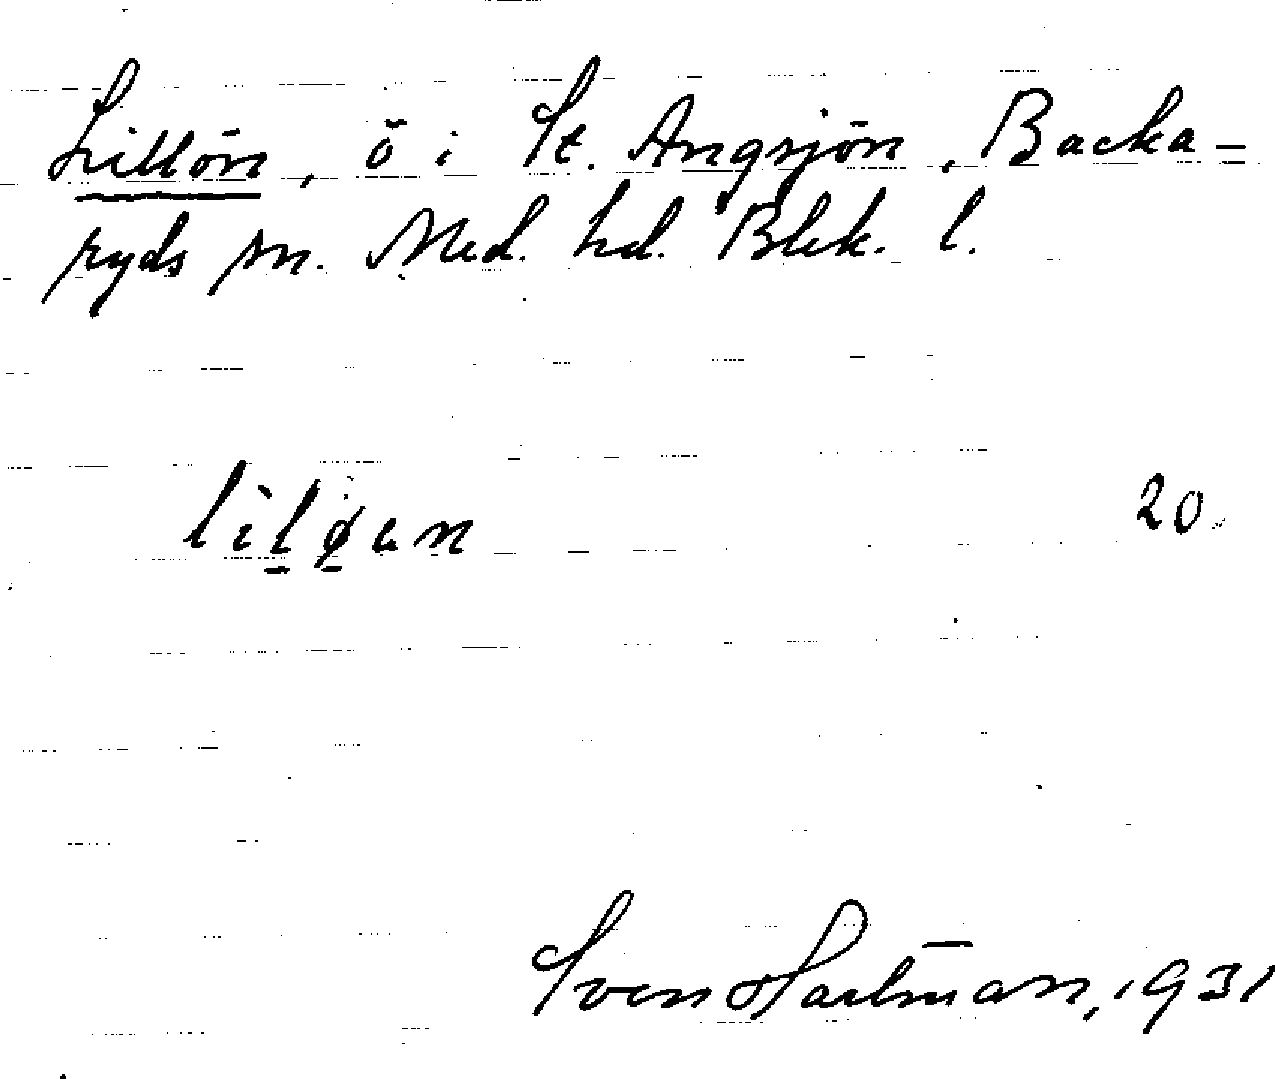 Lillön, ö i St. Angsjön, Backa-
ryds sn. Med. hd. Blek. l.
20.
Sven Hartman, 1931